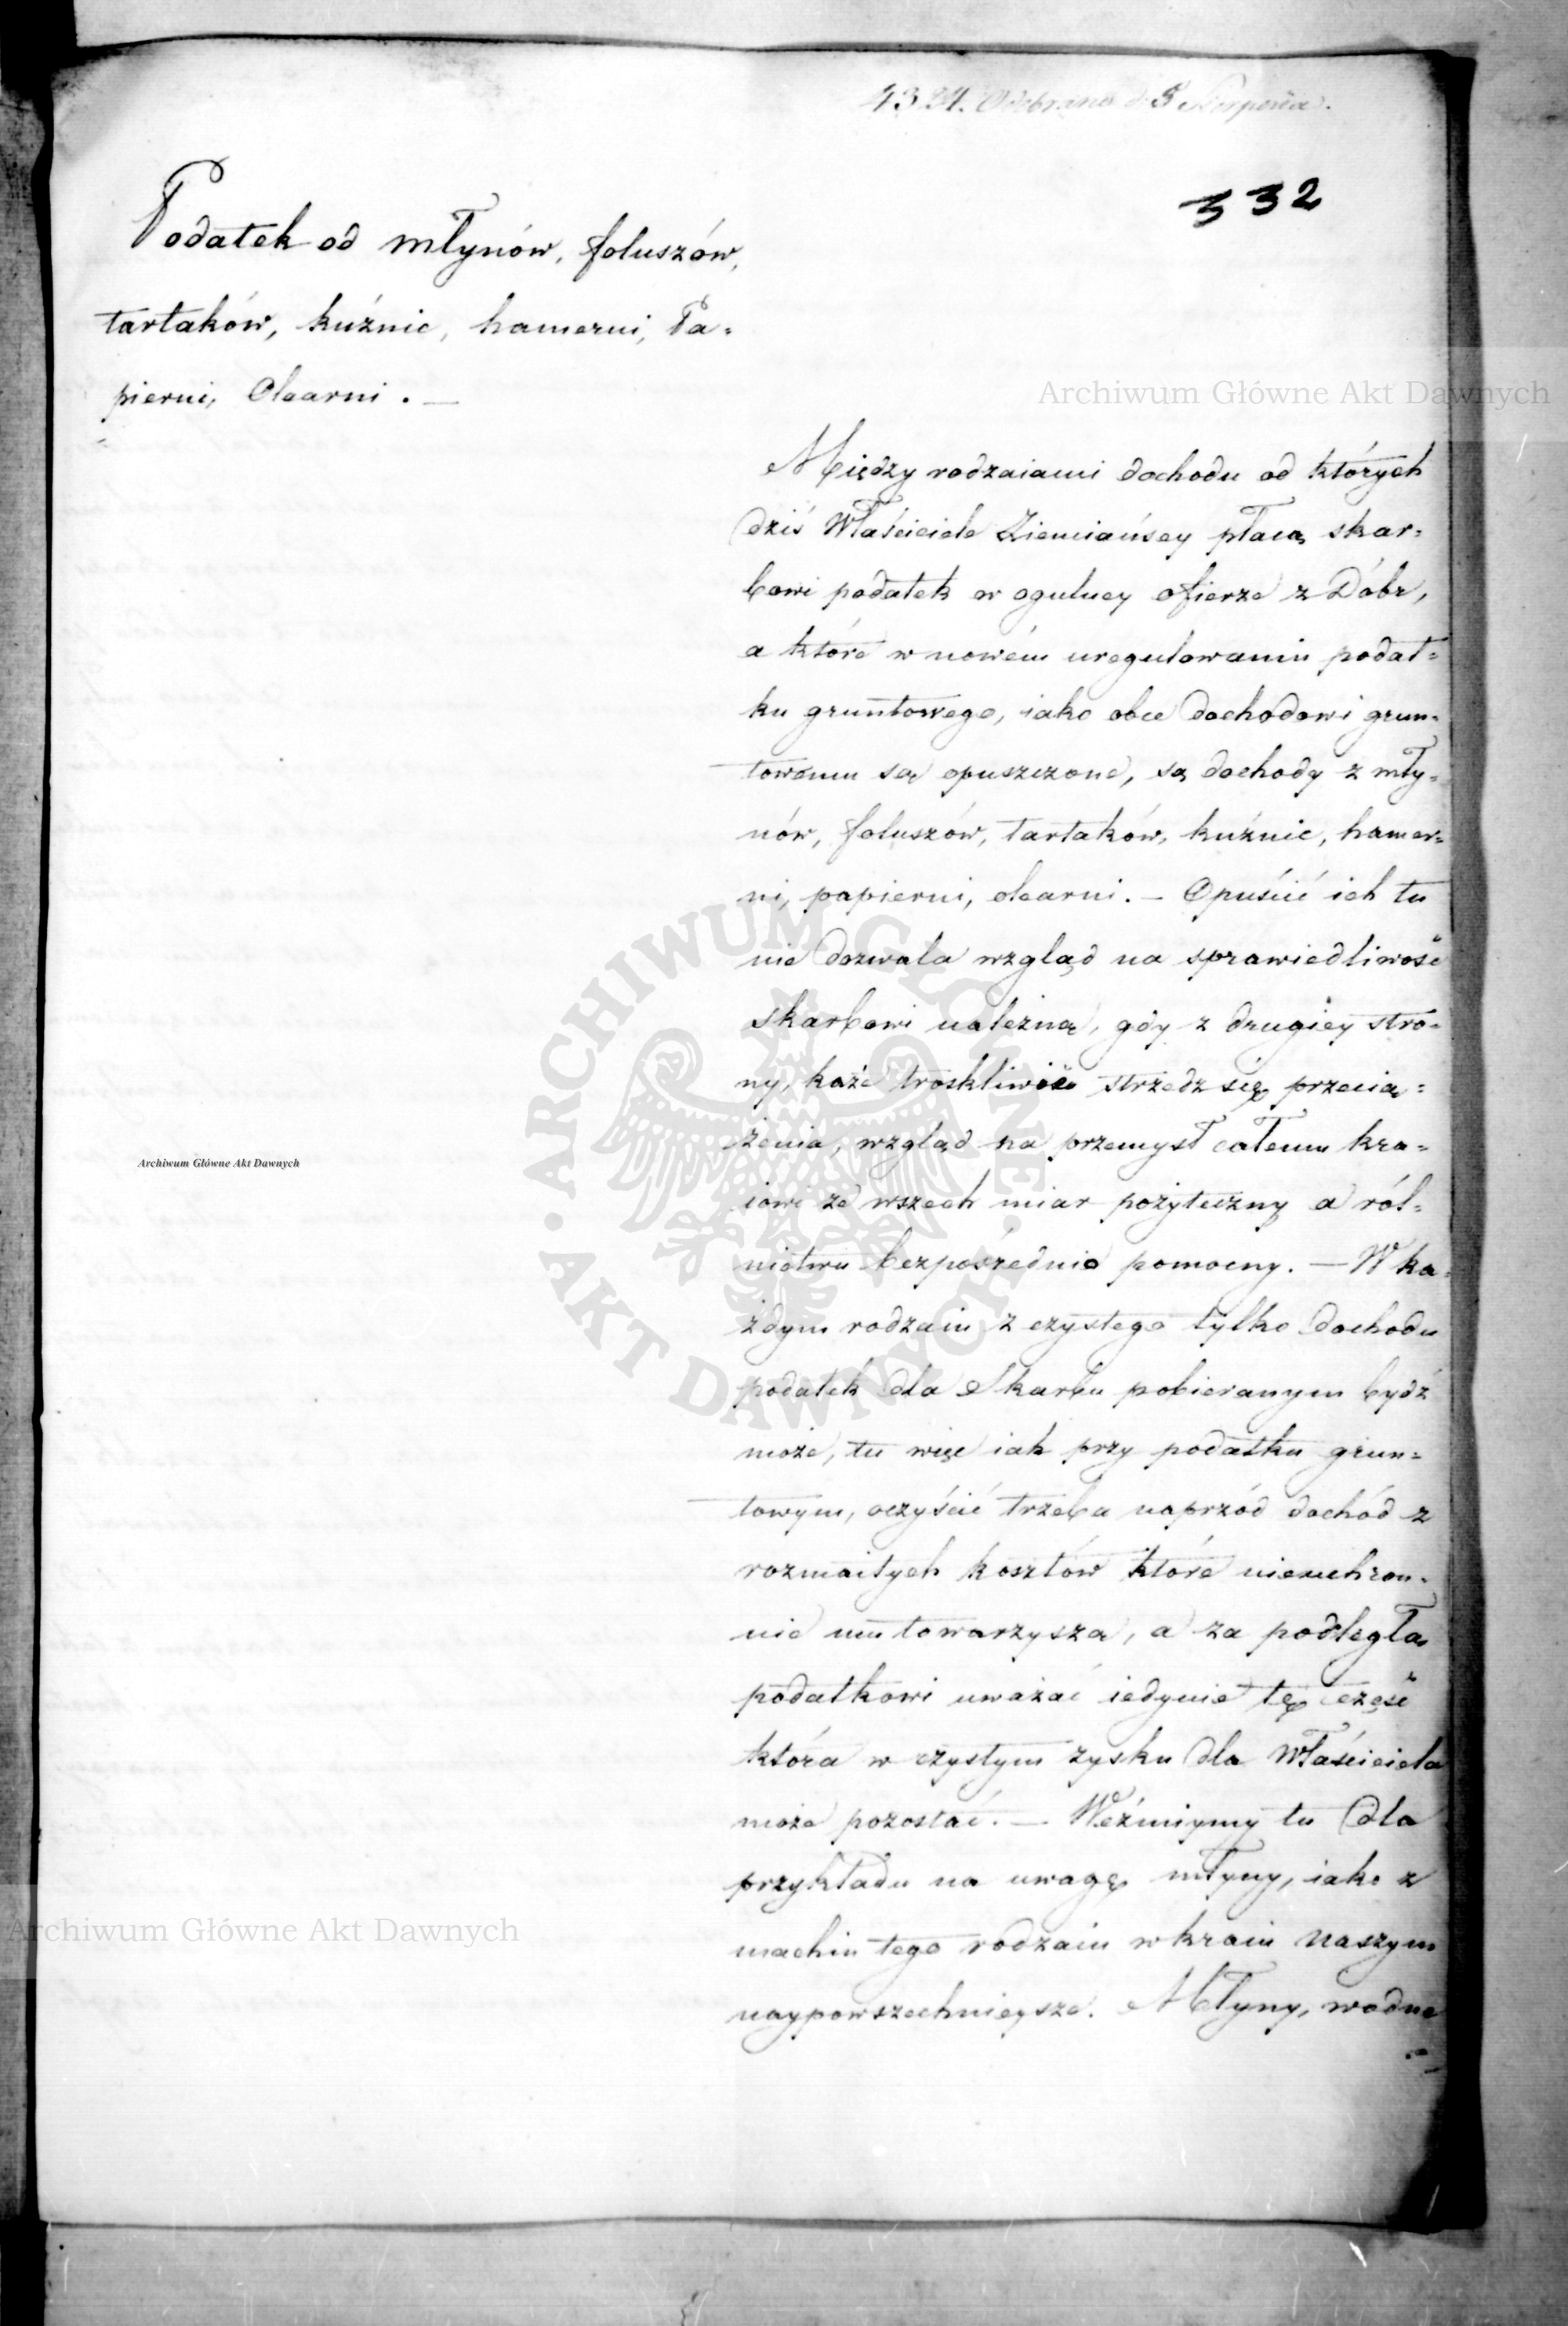 4324. Odebrano d. 5 Sierpnia.
332
Podatek od młynów, foluszów,
tartaków, kuźnic, hamerni, Pa=
pierni, Olearni. —
Archiwum Główne Akt Dawnych
Między rodzaiami dochodu od których
dziś Właściciele Ziemiańscy płacą skar=
bowi podatek w ogulney ofierze z Dóbr,
a które w nowém uregulowaniu podat=
ku gruntowego, iako obce dochodowi grun=
towemu są opuszczone, są dochody z mły=
nów, foluszów, tartaków, kuźnic, hamer=
ni, papierni, olearni. — Opuścić ich tu
nie dozwala wzgląd na sprawiedliwość
skarbowi należną, gdy z drugiey stro=
ny, każe troskliwie strzedz się przecią=
żenia, wzgląd na przemysł całemu kra=
iowi ze wszech miar pożyteczny a rol=
nictwu bezpośrednio pomocny. — W ka=
żdym rodzaiu z czystego tylko dochodu
podatek dla Skarbu pobieranym bydź
może, tu więc iak przy podatku grun=
towym, oczyścić trzeba naprzód dochód z
rozmaitych kosztów które nieuchron=
nie mu towarzyszą, a za podległą
podatkowi uważać iedynie tę część
która w czystym zysku dla Właściciela
może pozostać. — Weźmiymy tu dla
przykładu na uwagę młyny, iako z
machin tego rodzaiu w kraiu naszym
naypowszechnieysze. Młyny, wodne
ARCHIWUM GŁÓWNE AKT DAWNYCH
Archiwum Główne Akt Dawnych
Archiwum Główne Akt Dawnych